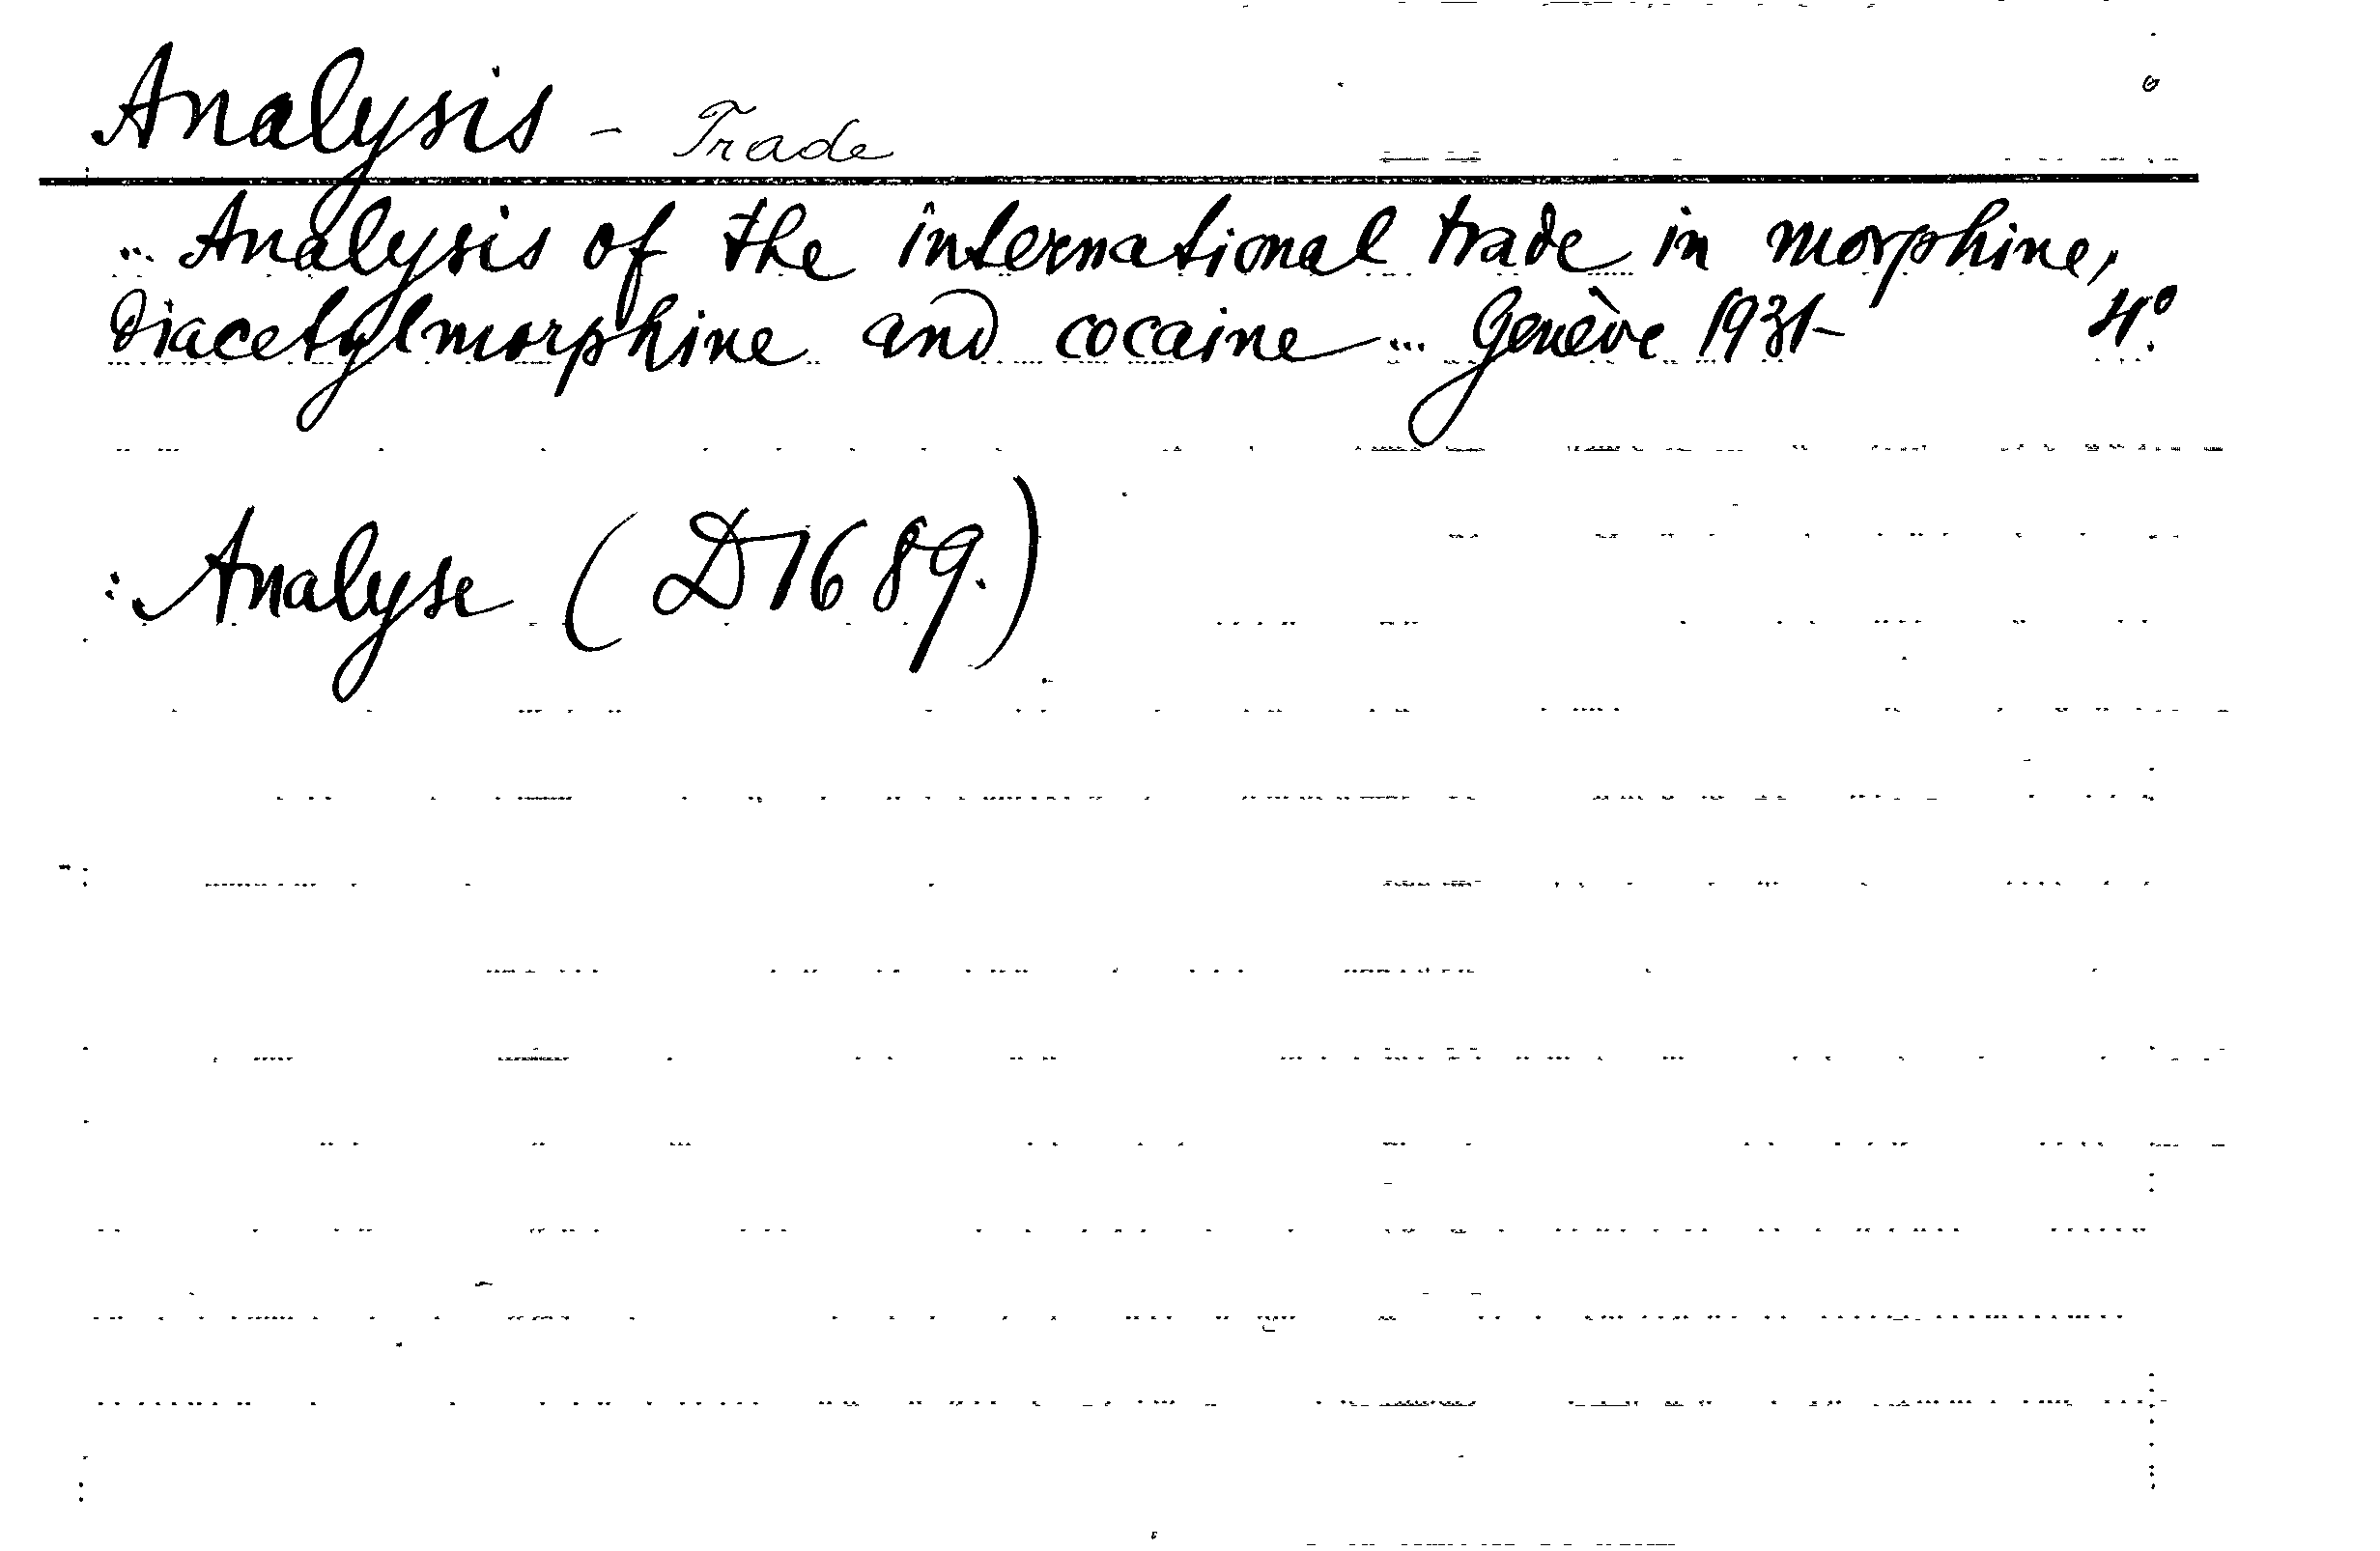 Analysis - Trade
... Analysis of the international trade in morphine,
diacetylmorphine and cocaine... Genève 1931- 4º.
: Analyse (D1689.)